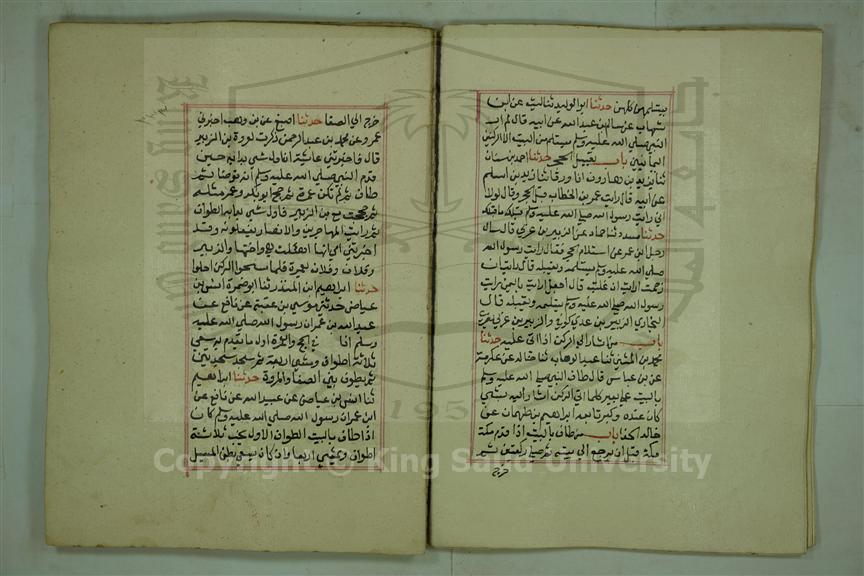 يستلمهن كلهن حدثنا ابو الوليد ثنا ليث عن ابن
شهاب عن سالم بن عبد الله عن ابيه قال لم ار
النبي صلى الله عليه وسلم يستلم من البيت الا الركنين
اليمانيين باب تقبيل الحجر حدثنا احمد بن سنان
ثنا يزيد بن هارون انا ورقا ثنا زيد بن اسلم
عن ابيه قال رايت عمر بن الخطاب قبل الحجر وقال لولا
اني رايت رسول الله صلى الله عليه وسلم قبلك ما قبلتك
حدثنا مسدد ثنا حماد عن الزبير بن عربي قال سال
رجل ابن عمر عن استلام الحجر فقال رايت رسول الله
صلى الله عليه وسلم يستلمه ويقبله قال ارايت ان
زحمت ارايت ان غلبت قال اجعل ارايت باليمن رايت
رسول الله صلى الله عليه وسلم يستلمه ويقبله قال
البخاري الزبير بن عدي كوفي والزبير بن عربي بصري
باب من اشار الى الركن اذا اتى عليه حدثنا
محمد بن المثنى ثنا عبد الوهاب ثنا خالد عن عكرمة
عن بن عباس قال طاف النبي صلى الله عليه وسلم
بالبيت على بعير كلما اتى الركن اشار اليه بشي
كان عنده وكبر تابعه ابراهيم بن طهمان عن
خالد الحذا باب من طاف بالبيت اذا قدم مكة
قبل ان يرجع الى بيته ثم صلى ركعتين ثم
خرج
خرج الى الصفا حدثنا اصبغ عن بن وهب اخبرني
عمرو عن محمد بن عبد الرحمن ذكرت لعروة بن الزبير
قال فاخبرتني عائشة ان اول شي بدا به حين
قدم النبي صلى الله عليه وسلم انه توضا ثم
طاف ثم لم تكن عمرة ثم حج ابو بكر وعمر مثله
ثم حججت مع بن الزبير فاول شي بدا به الطواف
ثم رايت المهاجرين والانصار يفعلونه وقد
اخبرتني امي انها اهلت هي واختها والزبير
وفلان وفلان بعمرة فلما مسحوا الركن احلوا
حدثنا ابراهيم ابن المنذر ثنا ابو ضمرة انس بن
عياض حدثني موسى بن عقبة عن نافع عن
عبد الله بن عمر ان رسول الله صلى الله عليه
وسلم اذا في الحج والعمرة اول ما يقدم يسعى
ثلاثة اطواف ومشى اربعة ثم سجد سجدتين
ثم يطوف بين الصفا والمروة حدثنا ابراهيم
ثنا انس بن عياض عن عبيد الله عن نافع عن
ابن عمر ان رسول الله صلى الله عليه وسلم كان
اذا طاف بالبيت الطواف الاول يخب ثلاثة
اطواف ويمشي اربعا وان كان يسعى بطن المسيل
Copyright © King Saud University
195